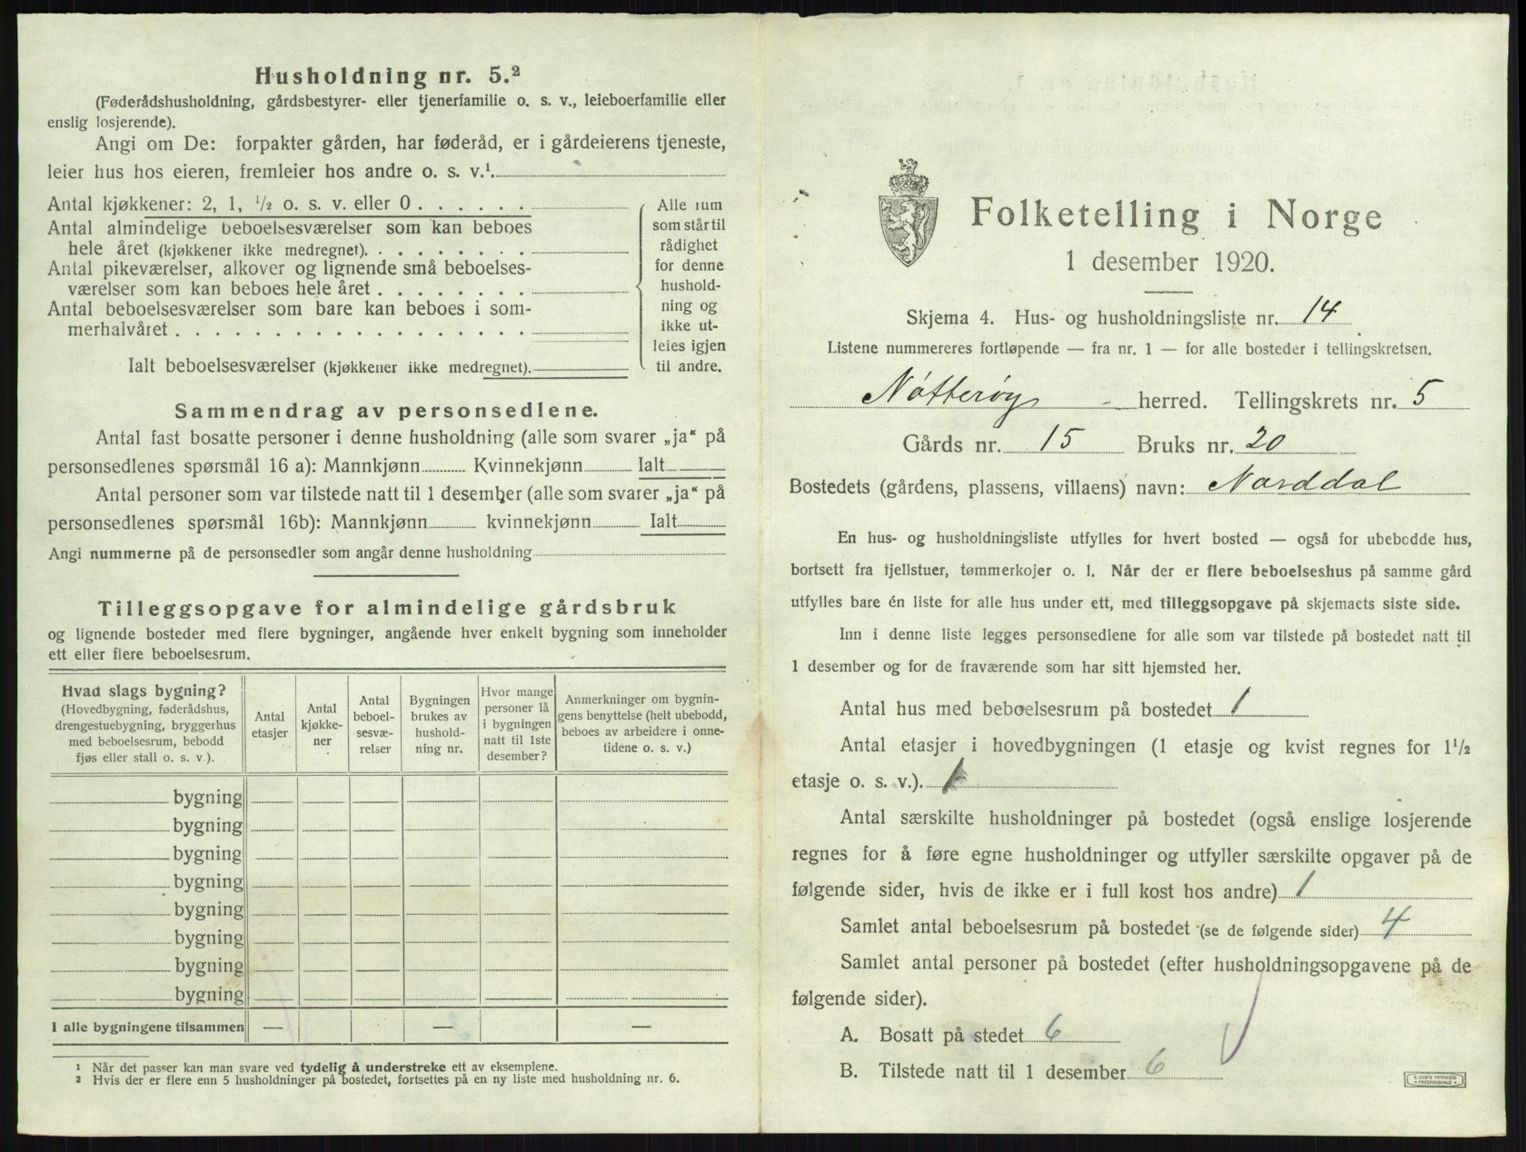 Husholdning nr. 5.²
(Føderådshusholdning, gårdsbestyrer- eller tjenerfamilie o. s. v., leieboerfamilie eller
enslig losjerende).
Angi om De: forpakter gården, har føderåd, er i gårdeierens tjeneste,
leier hus hos eieren, fremleier hos andre o. s. v.¹
Antal kjøkkener: 2, 1, ½ o. s. v. eller 0
Antal almindelige beboelsesværelser som kan beboes
hele året (kjøkkener ikke medregnet).
Antal pikeværelser, alkover og lignende små beboelses-
værelser som kan beboes hele året
Antal beboelsesværelser som bare kan beboes i som-
merhalvåret
Ialt beboelsesværelser (kjøkkener ikke medregnet).
Alle rum
som står til
rådighet
for denne
hushold-
ning og
ikke ut-
leies igjen
til andre.
Sammendrag av personsedlene.
Antal fast bosatte personer i denne husholdning (alle som svarer „ja“ på
personsedlenes spørsmål 16 a): Mannkjønn Kvinnekjønn Ialt
Antal personer som var tilstede natt til 1 desember (alle som svarer „ja“ på
personsedlenes spørsmål 16b): Mannkjønn kvinnekjønn Ialt
Angi nummerne på de personsedler som angår denne husholdning
Tilleggsopgave for almindelige gårdsbruk
og lignende bosteder med flere bygninger, angående hver enkelt bygning som inneholder
ett eller flere beboelsesrum.
Hvad slags bygning?
(Hovedbygning, føderådshus,
drengestuebygning, bryggerhus
med beboelsesrum, bebodd
fjøs eller stall o. s. v.).
Antal
etasjer
Antal
kjøkke-
ner
Antal
beboel-
sesvæ-
relser
Bygningen
brukes av
hushold-
ning nr.
Hvor mange
personer lå
i bygningen
natt til 1ste
desember?
Anmerkninger om bygnin-
gens benyttelse (helt ubebodd,
beboes av arbeidere i onne-
tidene o. s. v.)
bygning
bygning
bygning
bygning
bygning
bygning
bygning
bygning
I alle bygningene tilsammen — — —
¹ Når det passer kan man svare ved tydelig å understreke ett av eksemplene.
² Hvis der er flere enn 5 husholdninger på bostedet, fortsettes på en ny liste med husholdning nr. 6.
Folketelling i Norge
1 desember 1920.
Skjema 4. Hus- og husholdningsliste nr. 14
Listene nummereres fortløpende — fra nr. 1 — for alle bosteder i tellingskretsen.
Nøtterøy herred. Tellingskrets nr. 5
Gårds nr. 15 Bruks nr. 20
Bostedets (gårdens, plassens, villaens) navn: Norddal
En hus- og husholdningsliste utfylles for hvert bosted — også for ubebodde hus,
bortsett fra fjellstuer, tømmerkojer o. l. Når der er flere beboelseshus på samme gård
utfylles bare én liste for alle hus under ett, med tilleggsopgave på skjemaets siste side.
Inn i denne liste legges personsedlene for alle som var tilstede på bostedet natt til
1 desember og for de fraværende som har sitt hjemsted her.
Antal hus med beboelsesrum på bostedet 1
Antal etasjer i hovedbygningen (1 etasje og kvist regnes for 1½
etasje o. s. v.). 1
Antal særskilte husholdninger på bostedet (også enslige losjerende
regnes for å føre egne husholdninger og utfyller særskilte opgaver på de
følgende sider, hvis de ikke er i full kost hos andre) 1
Samlet antal beboelsesrum på bostedet (se de følgende sider) 4
Samlet antal personer på bostedet (efter husholdningsopgavene på de
følgende sider).
A. Bosatt på stedet 6
B. Tilstede natt til 1 desember 6